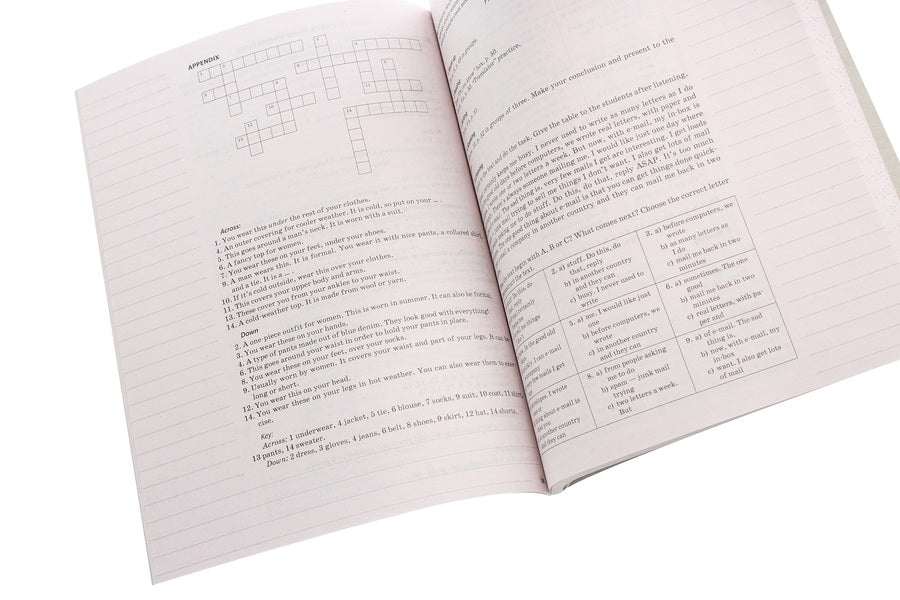 APPENDIX
Across:
1. You wear this under the rest of your clothes.
4. An outer covering for cooler weather. It is cold, so put on your ... .
5. This goes around a man's neck. It is worn with a suit.
6. A fancy top for women.
7. You wear these on your feet, under your shoes.
9. A man wears this. It is formal. You wear it with nice pants, a collared shirt,
and a tie. It is a ... .
10. If it's cold outside, wear this over your clothes.
11. This covers your upper body and arms.
13. These cover you from your ankles to your waist.
14. A cold-weather top. It is made from wool or yarn.
Down
2. A one-piece outfit for women. This is worn in summer. It can also be formal.
3. You wear these on your hands.
4. A type of pants made out of blue denim. They look good with everything!
6. This goes around your waist in order to hold your pants in place.
8. You wear these on your feet, over your socks.
9. Usually worn by women. It covers your waist and part of your legs. It can be
long or short.
12. You wear this on your head.
14. You wear these on your legs in hot weather. You can also wear them to
cise.
Key:
Across: 1 underwear, 4 jacket, 5 tie, 6 blouse, 7 socks, 9 suit, 10 coat, 11 shirt,
13 pants, 14 sweater.
Down: 2 dress, 3 gloves, 4 jeans, 6 belt, 8 shoes, 9 skirt, 12 hat, 14 shorts.
in groups.
know" box, p. 50.
p. 50. "Translator" practice.
p. 51.
52 in groups of three. Make your conclusion and present to the
the text and do the task. Give the table to the students after listening.
keep me busy. I never used to write as many letters as I do
old days before computers, we wrote real letters, with paper and
one or two letters a week. But now, with e-mail, my in-box is
There's always someone mailing me. I would like just one day where
mail. The sad thing is, very few mails I get are interesting. I get loads
mail trying to sell me things I don't want. I also get lots of mail
me to do stuff. Do this, do that, reply ASAP. It's too much
The good thing about e-mail is that you can get things done quick-
company in another country and they can mail me back in two
begin with A, B or C? What comes next? Choose the correct letter
the text.
2. a) stuff. Do this, do
that, reply
b) in another country
and they can
c) busy. I never used to
write
3. a) before computers, we
wrote
b) as many letters as
I do
c) mail me back in two
minutes
5. a) me. I would like just
one
b) before computers, we
wrote
c) in another country
and they can
6. a) sometimes. The one
good
b) mail me back in two
minutes
c) real letters, with pa-
per and
8. a) from people asking
me to do
b) spam — junk mail
trying
c) two letters a week.
But
9. a) of e-mail. The sad
thing is,
b) now, with e-mail, my
in-box
c) want. I also get lots
of mail